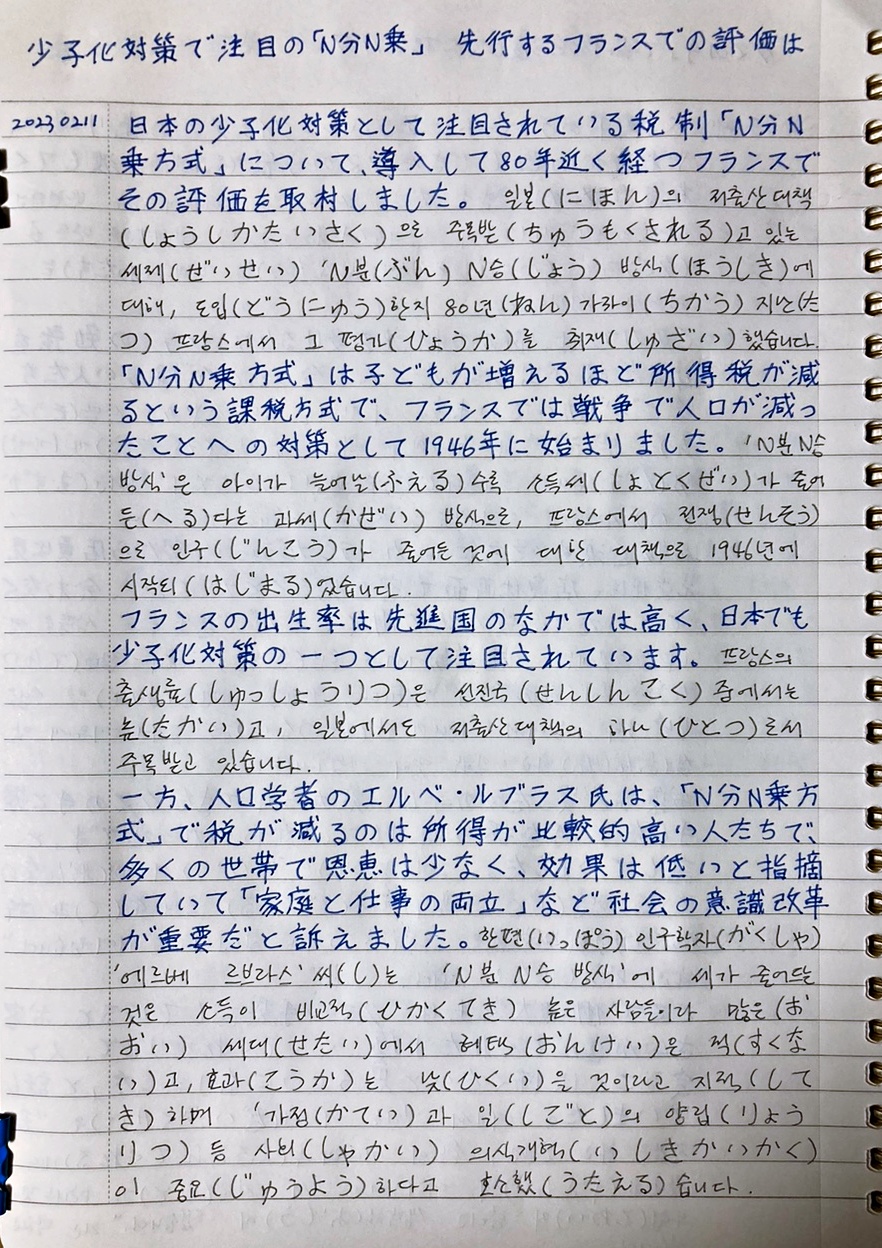 少子化対策で注目の「N分N乗」 先行するフランスでの評価は
20230211 日本の少子化対策として注目されている税制「N分N
乗方式」について、導入して80年近く経つフランスで
その評価を取材しました。 일본(にほん)의 저출산대책
(しょうしかたいさく)으로 주목받(ちゅうもくされる)고 있는
세제(ぜいせい) 'N분(ぶん) N승(じょう) 방식(ほうしき)에
대해, 도입(どうにゅう)한지 80년(ねん) 가까이(ちかう) 지난(た
つ) 프랑스에서 그 평가(ひょうか)를 취재(しゅざい)했습니다.
「N分N乗方式」は子どもが増えるほど所得税が減
るという課税方式で、フランスでは戦争で人口が減っ
たことへの対策として1946年に始まりました。 'N분N승
방식'은 아이가 늘어날(ふえる)수록 소득세(しょとくぜい)가 줄어
든(へる)다는 과세(かぜい) 방식으로, 프랑스에서 전쟁(せんそう)
으로 인구(じんこう)가 줄어든 것에 대한 대책으로 1946년에
시작되(はじまる)었습니다.
フランスの出生率は先進国のなかでは高く、日本でも
少子化対策の一つとして注目されています。 프랑스의
출생률(しゅっしょうりつ)은 선진국(せんしんこく) 중에서는
높(たかい)고, 일본에서도 저출산대책의 하나(ひとつ)로서
주목받고 있습니다.
一方、人口学者のエルベ・ルブラス氏は、「N分N乗方
式」で税が減るのは所得が比較的高い人たちで、
多くの世帯で恩恵は少なく、効果は低いと指摘
していて「家庭と仕事の両立」など社会の意識改革
が重要だと訴えました。 한편(いっぽう) 인구학자(がくしゃ)
'에르베 르브라스' 씨(し)는 'N분 N승 방식'에 세가 줄어드는
것은 소득이 비교적(ひかくてき) 높은 사람들이라 많은(お
おい) 세대(せたい)에서 혜택(おんけい)은 적(すくな
い)고, 효과(こうか)는 낮(ひくい)을 것이라고 지적(して
き)하며 '가정(かてい)과 일(しごと)의 양립(りょう
りつ) 등 사회(しゃかい) 의식개혁(いしきかいかく)
이 중요(じゅうよう)하다고 호소했(うたえる)습니다.